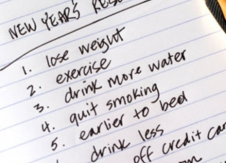 NEW YEAR'S
1. lose weight
2. exercise
3. drink more water
4. quit smoking
5. earlier to bed
drink less
off credit